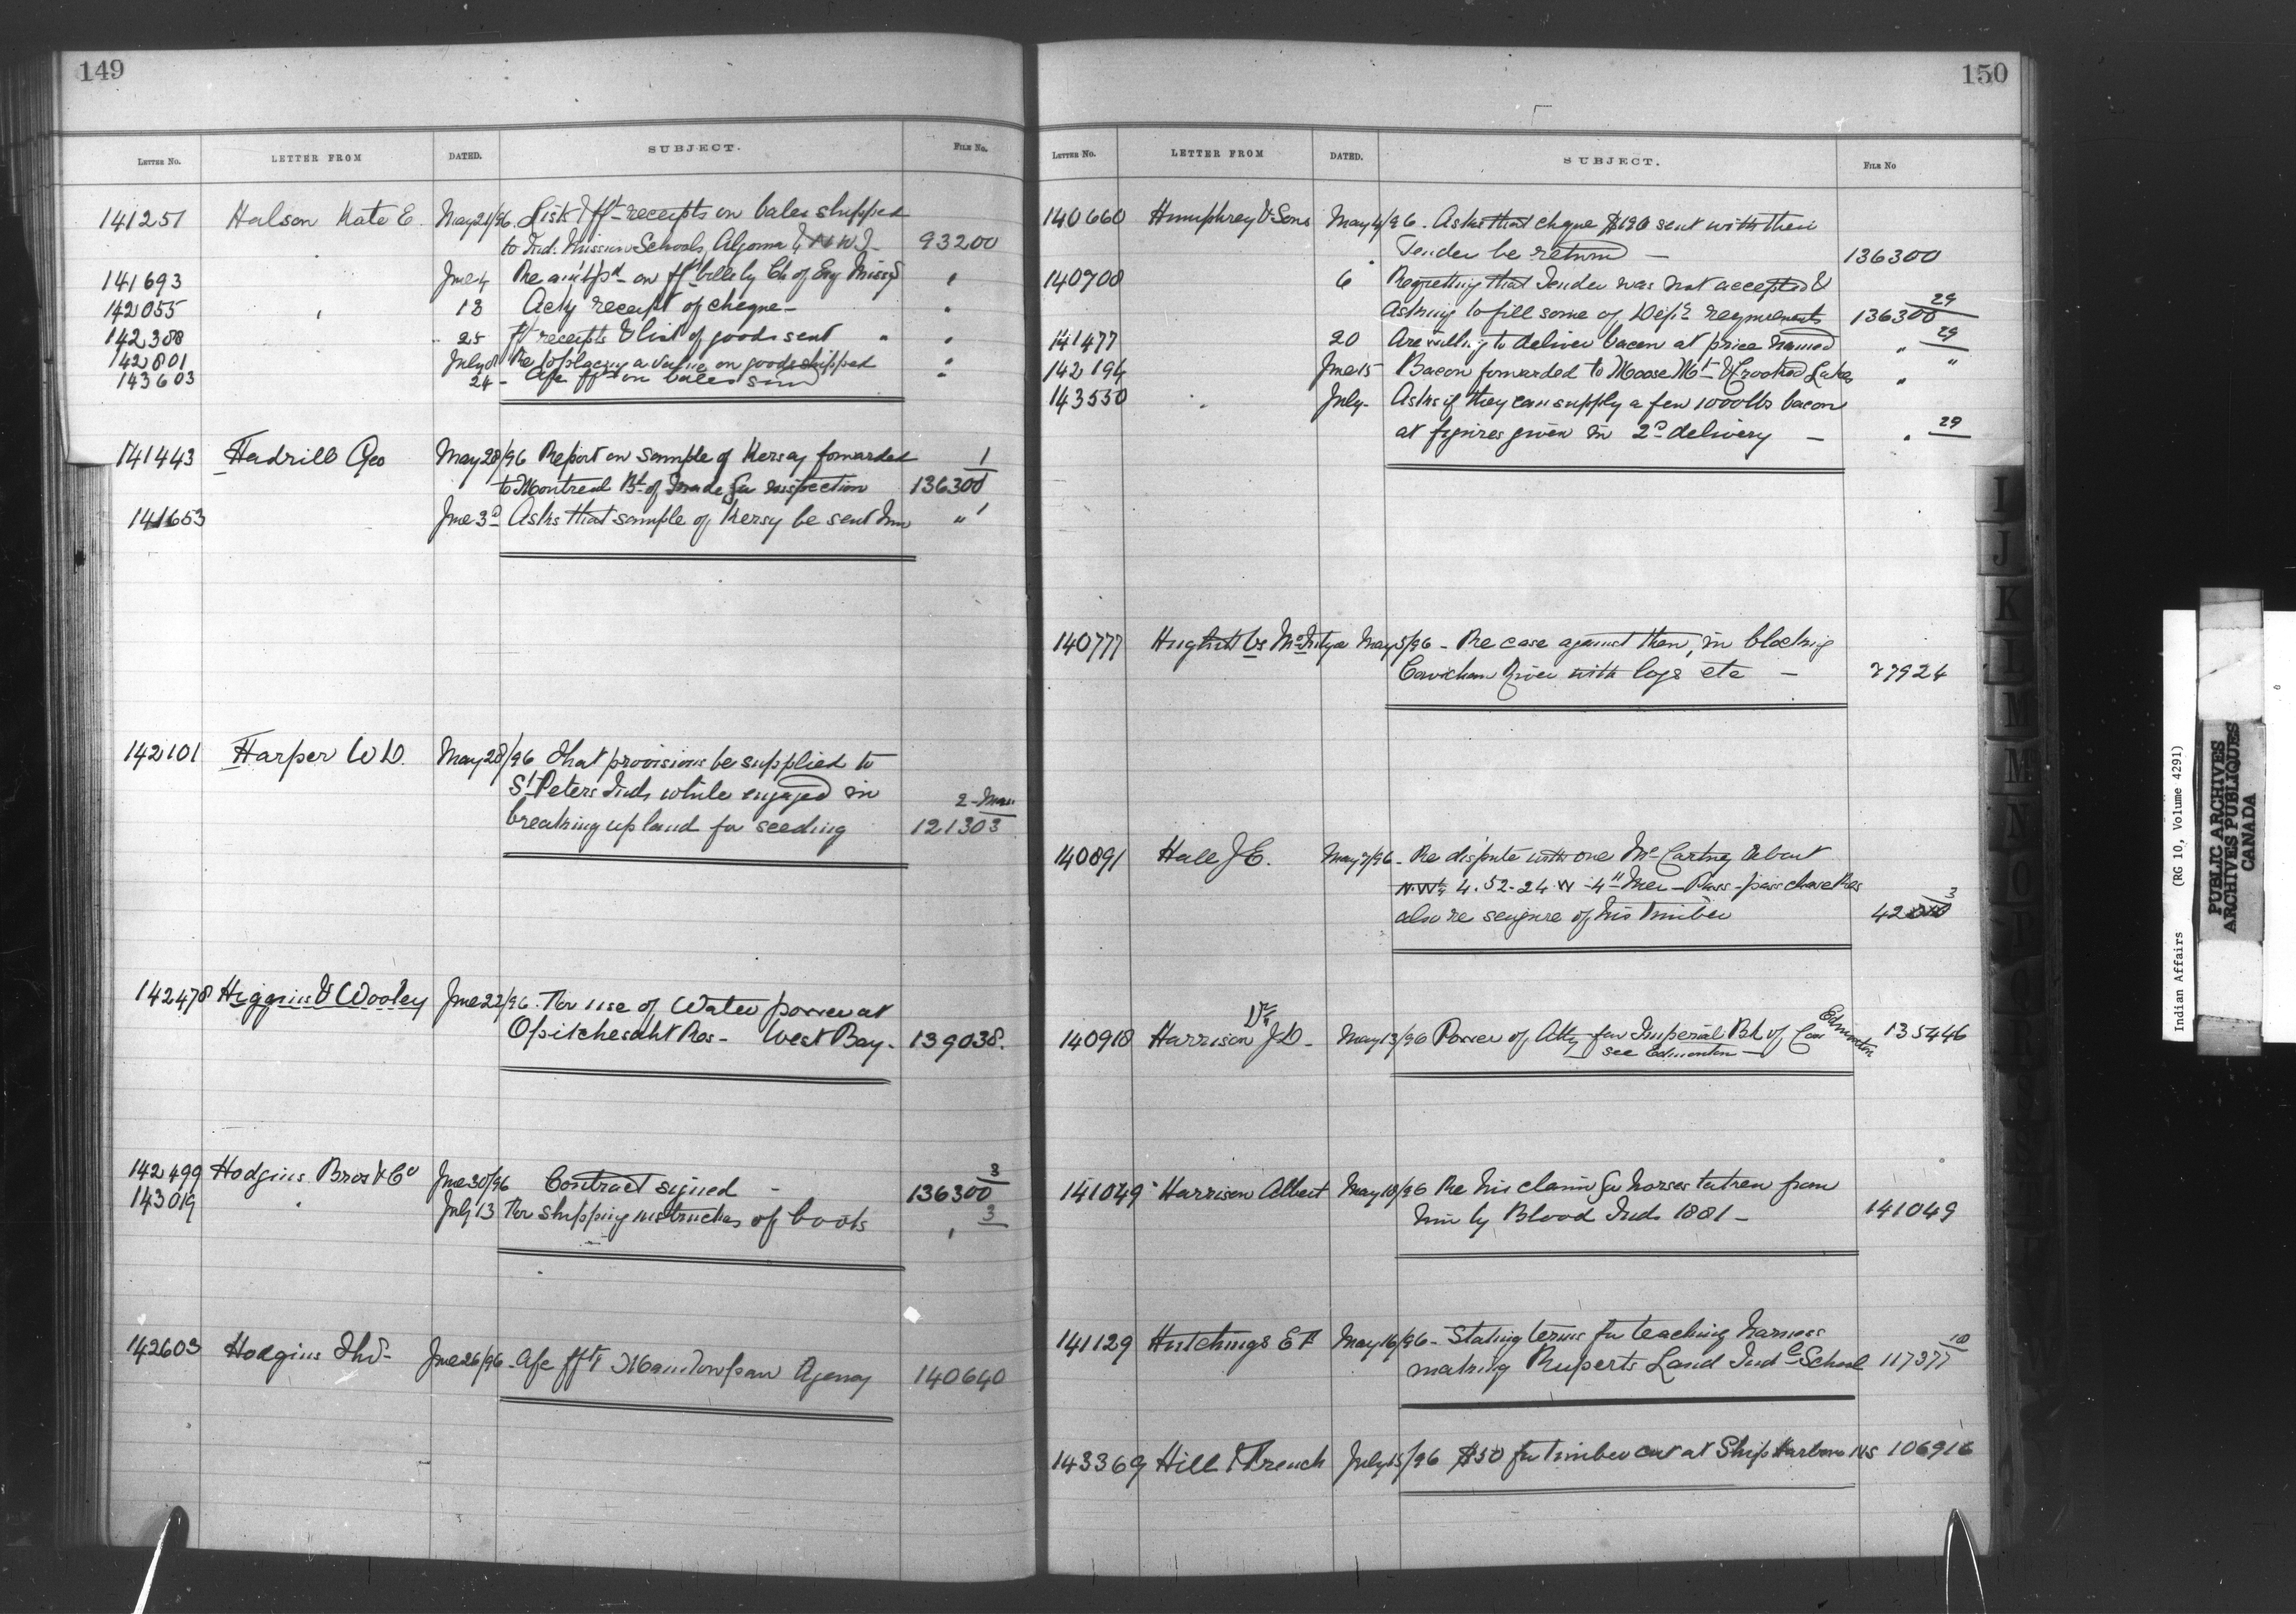 149
LETTER No. LETTER FROM DATED. SUBJECT. FILE No.
141251 Halson Kate E. May 21/96. List & fft receipts on bales shipped
to Ind. Mission Schools, Algoma & N W T - 93200
141693 June 4 Re am't p'd on fft bills by Ch of Eng Miss'y "
142055 " 18 Ackg receipt of cheque - "
142388 25 fft receipts & list of goods sent " "
142801 July 8 Re placing a value on goods shipped "
143603 24 - a/c fft on bales sent "
141443 Hadrill Geo May 28/96 Report on sample of Kersey forwarded 1
to Montreal Bd of Trade for inspection 136300
141653 June 3d Asks that sample of Kersey be sent him " 1
142101 Harper W D. May 28/96 That provisions be supplied to
St Peters Inds while engaged in 2 - Man
breaking up land for seeding 121303
142478 Higgins & Wooley June 22/96. For use of Water power at
Opitchesaht Res - West Bay. 139038.
142499 Hodgins Bros & Co June 30/96 Contract signed - 136300 3
143019 " July 13 For shipping instructions of boots " 3
142603 Hodgins Thos - June 26/96 - a/c fft Manitowpaw Agency 140640
150
LETTER No. LETTER FROM DATED. SUBJECT. FILE No
140660 Humphrey & Sons May 4/96. Asks that cheque $190 sent with their
Tender be return'd - 136300
140708 " 6 Regretting that Tender was not accepted &
Asking to fill some of Dep't requirements 136300 29
141477 20 Are willing to deliver bacon at price named " 29
142194 June 15 Bacon forwarded to Moose Mt & Crooked Lakes " "
143550 " July - Asks if they can supply a few 1000 lbs bacon
at figures given in 2d delivery - " 29
140777 Hughitt vs McIntyre May 5/96 - Re case against them, in blocking
Cowichan River with logs etc - 77924
140891 Hall J E. May 7/96 - Re dispute with one McCartney about
N.W¼ 4. 52-24 W 4th Mer - Pass-pass-chase Res
also re seizure of his timber 42000 3
140918 Harrison J D - Dr May 13/96 Power of Atty for Imperial Bk of Can Edmonton 135446
see Edmonton -
141049 Harrison Albert May 18/96 Re his claim for horses taken from
him by Blood Inds 1881 - 141049
141129 Hutchings E F May 16/96 - Stating terms for teaching harness
making Ruperts Land Ind'l School 117377 10
143369 Hill & French July 15/96 $50 for timber cut at Ship Harbour NS 106916
I
J
K
L
M
M
N
O
Indian Affairs (RG 10, Volume 4291)
PUBLIC ARCHIVES
ARCHIVES PUBLIQUES
CANADA